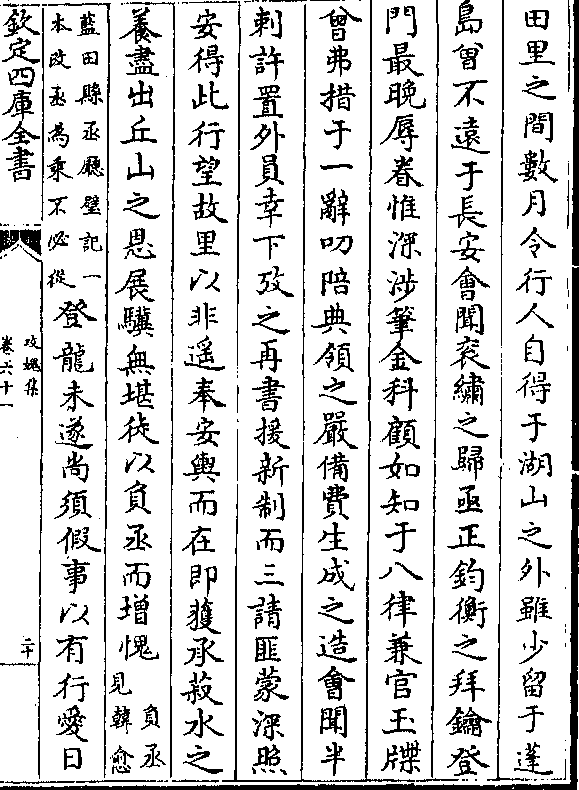 田里之間數月令行人自得于湖山之外雖少留于蓬
島曾不遠于長安會聞衮繡之歸亟正鈞衡之拜鑰登
門最晚辱眷惟深涉筆金科顧如知于八律兼官玉牒
曾弗措于一辭叨陪典領之嚴備費生成之造會聞半
刺許置外員幸下攷之再書援新制而三請匪蒙深照
安得此行望故里以非遥奉安輿而在即獲承菽水之
養盡出丘山之恩展驥無堪徒以負丞而增愧負丞見韓愈
藍田縣丞廳壁記一本改丞為乘不必從登龍未遂尚須假事以有行愛日
欽定四庫全書
攻媿集
卷六十一
二十